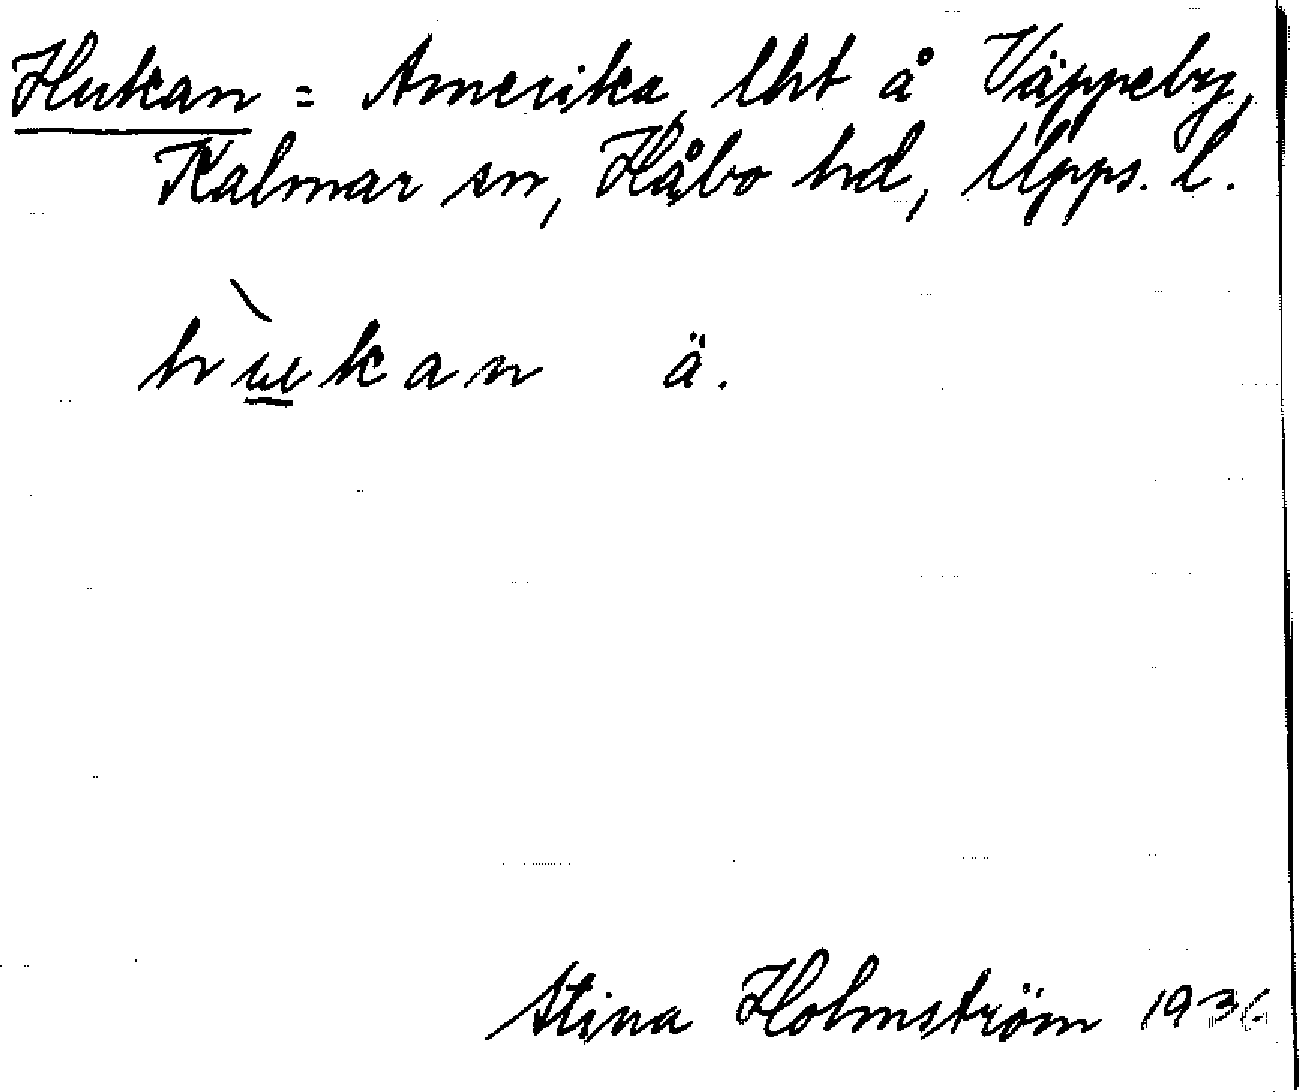 Hukan = Amerika, lht å Väppeby,
Kalmar sn, Håbo hd, Upps. l.
hùkan ä.
Stina Holmström 1936